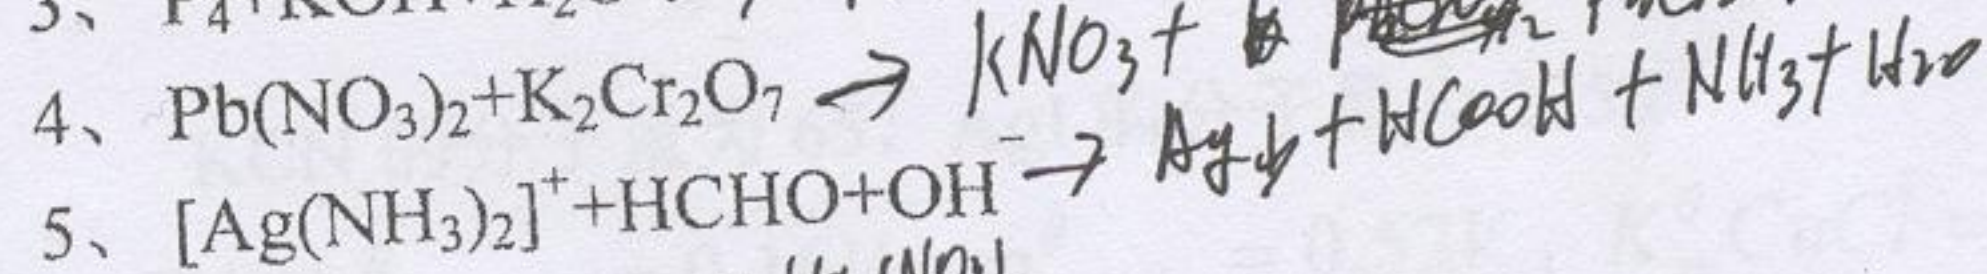 3、P₄+KOH+H₂
4、Pb(NO₃)₂+K₂Cr₂O₇ → KNO₃+
5、[Ag(NH₃)₂]⁺+HCHO+OH⁻ → Ag↓+HCOOH+NH₃+H₂O